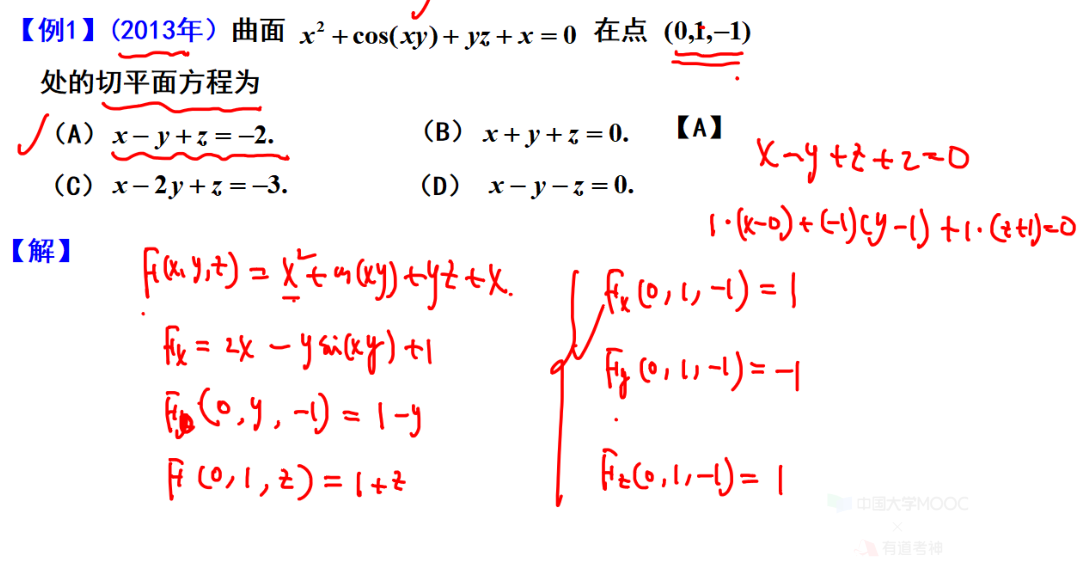 【例1】(2013年) 曲面 x² + cos(xy) + yz + x = 0 在点 (0,1,−1)
处的切平面方程为
(A) x − y + z = −2. (B) x + y + z = 0. 【A】
(C) x − 2y + z = −3. (D) x − y − z = 0.
x−y+z+2=0
1·(x−0)+(−1)(y−1)+1·(z+1)=0
【解】
F(x,y,z) = x²+cos(xy)+yz+x.
Fx = 2x − y sin(xy) +1
F(0, y, −1) = 1−y
F(0, 1, z) = 1+z
Fx(0, 1, −1) = 1
Fy(0, 1, −1) = −1
Fz(0, 1, −1) = 1
中国大学MOOC
×
有道考神